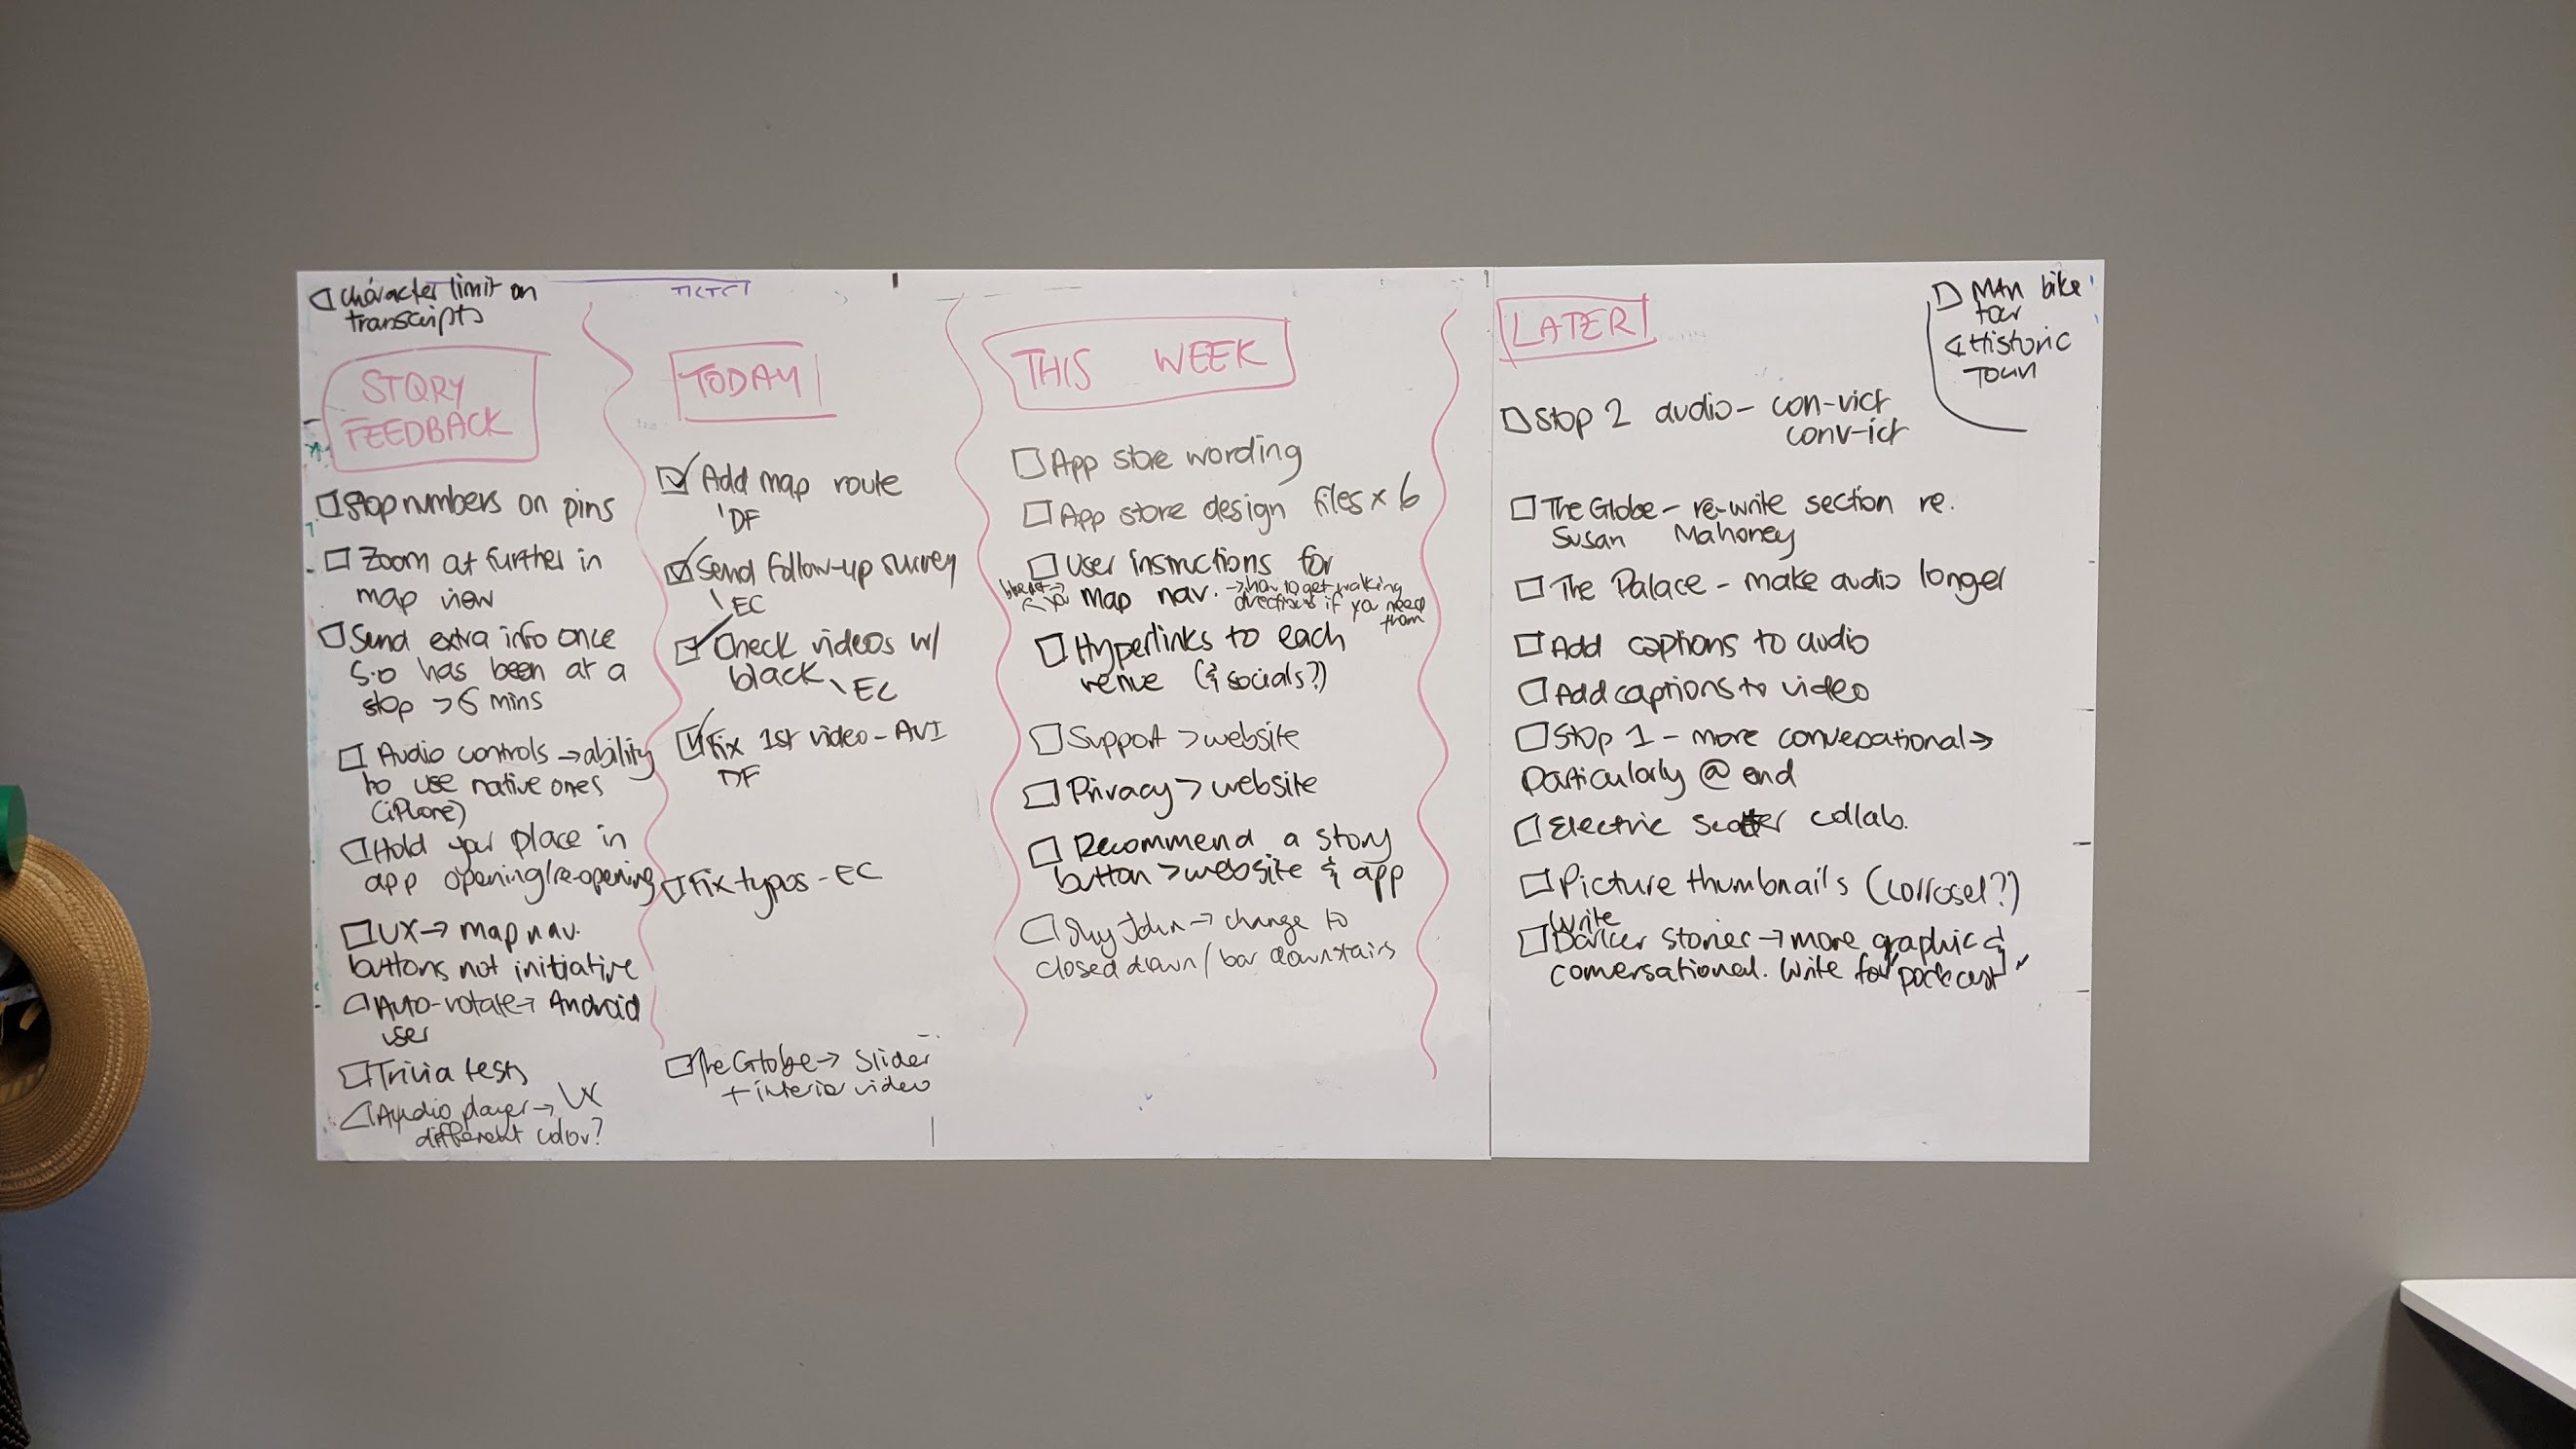 character limit on
transcripts
STORY
FEEDBACK
Stop numbers on pins
Zoom at further in
map view
Send extra info once
s.o has been at a
stop >5 mins
Audio controls → ability
to use native ones
(iPhone)
Hold your place in
app opening/re-opening
UX → map nav.
buttons not initiative
Auto-rotate → Android
user
Trivia tests
Audio player → UX
different color?
TODAY
Add map route
DF
Send follow-up survey
EC
Check videos w/
black EC
Fix 1st video - AVI
DF
Fix typos - EC
The Globe → Slider
+ interior video
THIS WEEK
App store wording
App store design files x 6
User instructions for
map nav. → how to get walking
directions if you need
them
Hyperlinks to each
venue (& socials?)
Support > website
Privacy > website
Recommend a story
button > website & app
Shy John → change to
closed down / bar downstairs
LATER
MAN bike
tour
Historic
Town
Stop 2 audio - con-vict
conv-ict
The Globe - re-write section re.
Susan Mahoney
The Palace - make audio longer
Add captions to audio
Add captions to video
Stop 1 - more conversational →
Particularly @ end
Electric scooter collab.
Picture thumbnails (corrosel?)
Write
Darker stories → more graphic &
conversational. Write for "podcast"